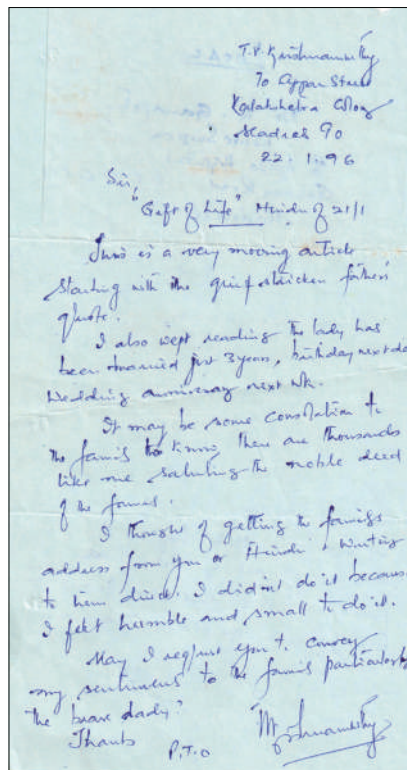 T.V. Krishnamurthy
70 Appar Street
Kalakshetra Colony
Madras 90
22.1.96
Sir,
"Gift of Life" Hindu of 21/1
This is a very moving article
starting with the grief stricken fathers'
quote.
I also wept reading the lady has
been married just 3 years, birthday next day
Wedding anniversary next wk.
It may be some consolation to
the family to know there are thousands
like me saluting the noble deed
of the family.
I thought of getting the family's
address from you or Hindu & writing
to them direct. I didn't do it because
I felt humble and small to do it.
May I request you to convey
my sentiments to the family particularly
the brave dady?
Thanks
P.T.O